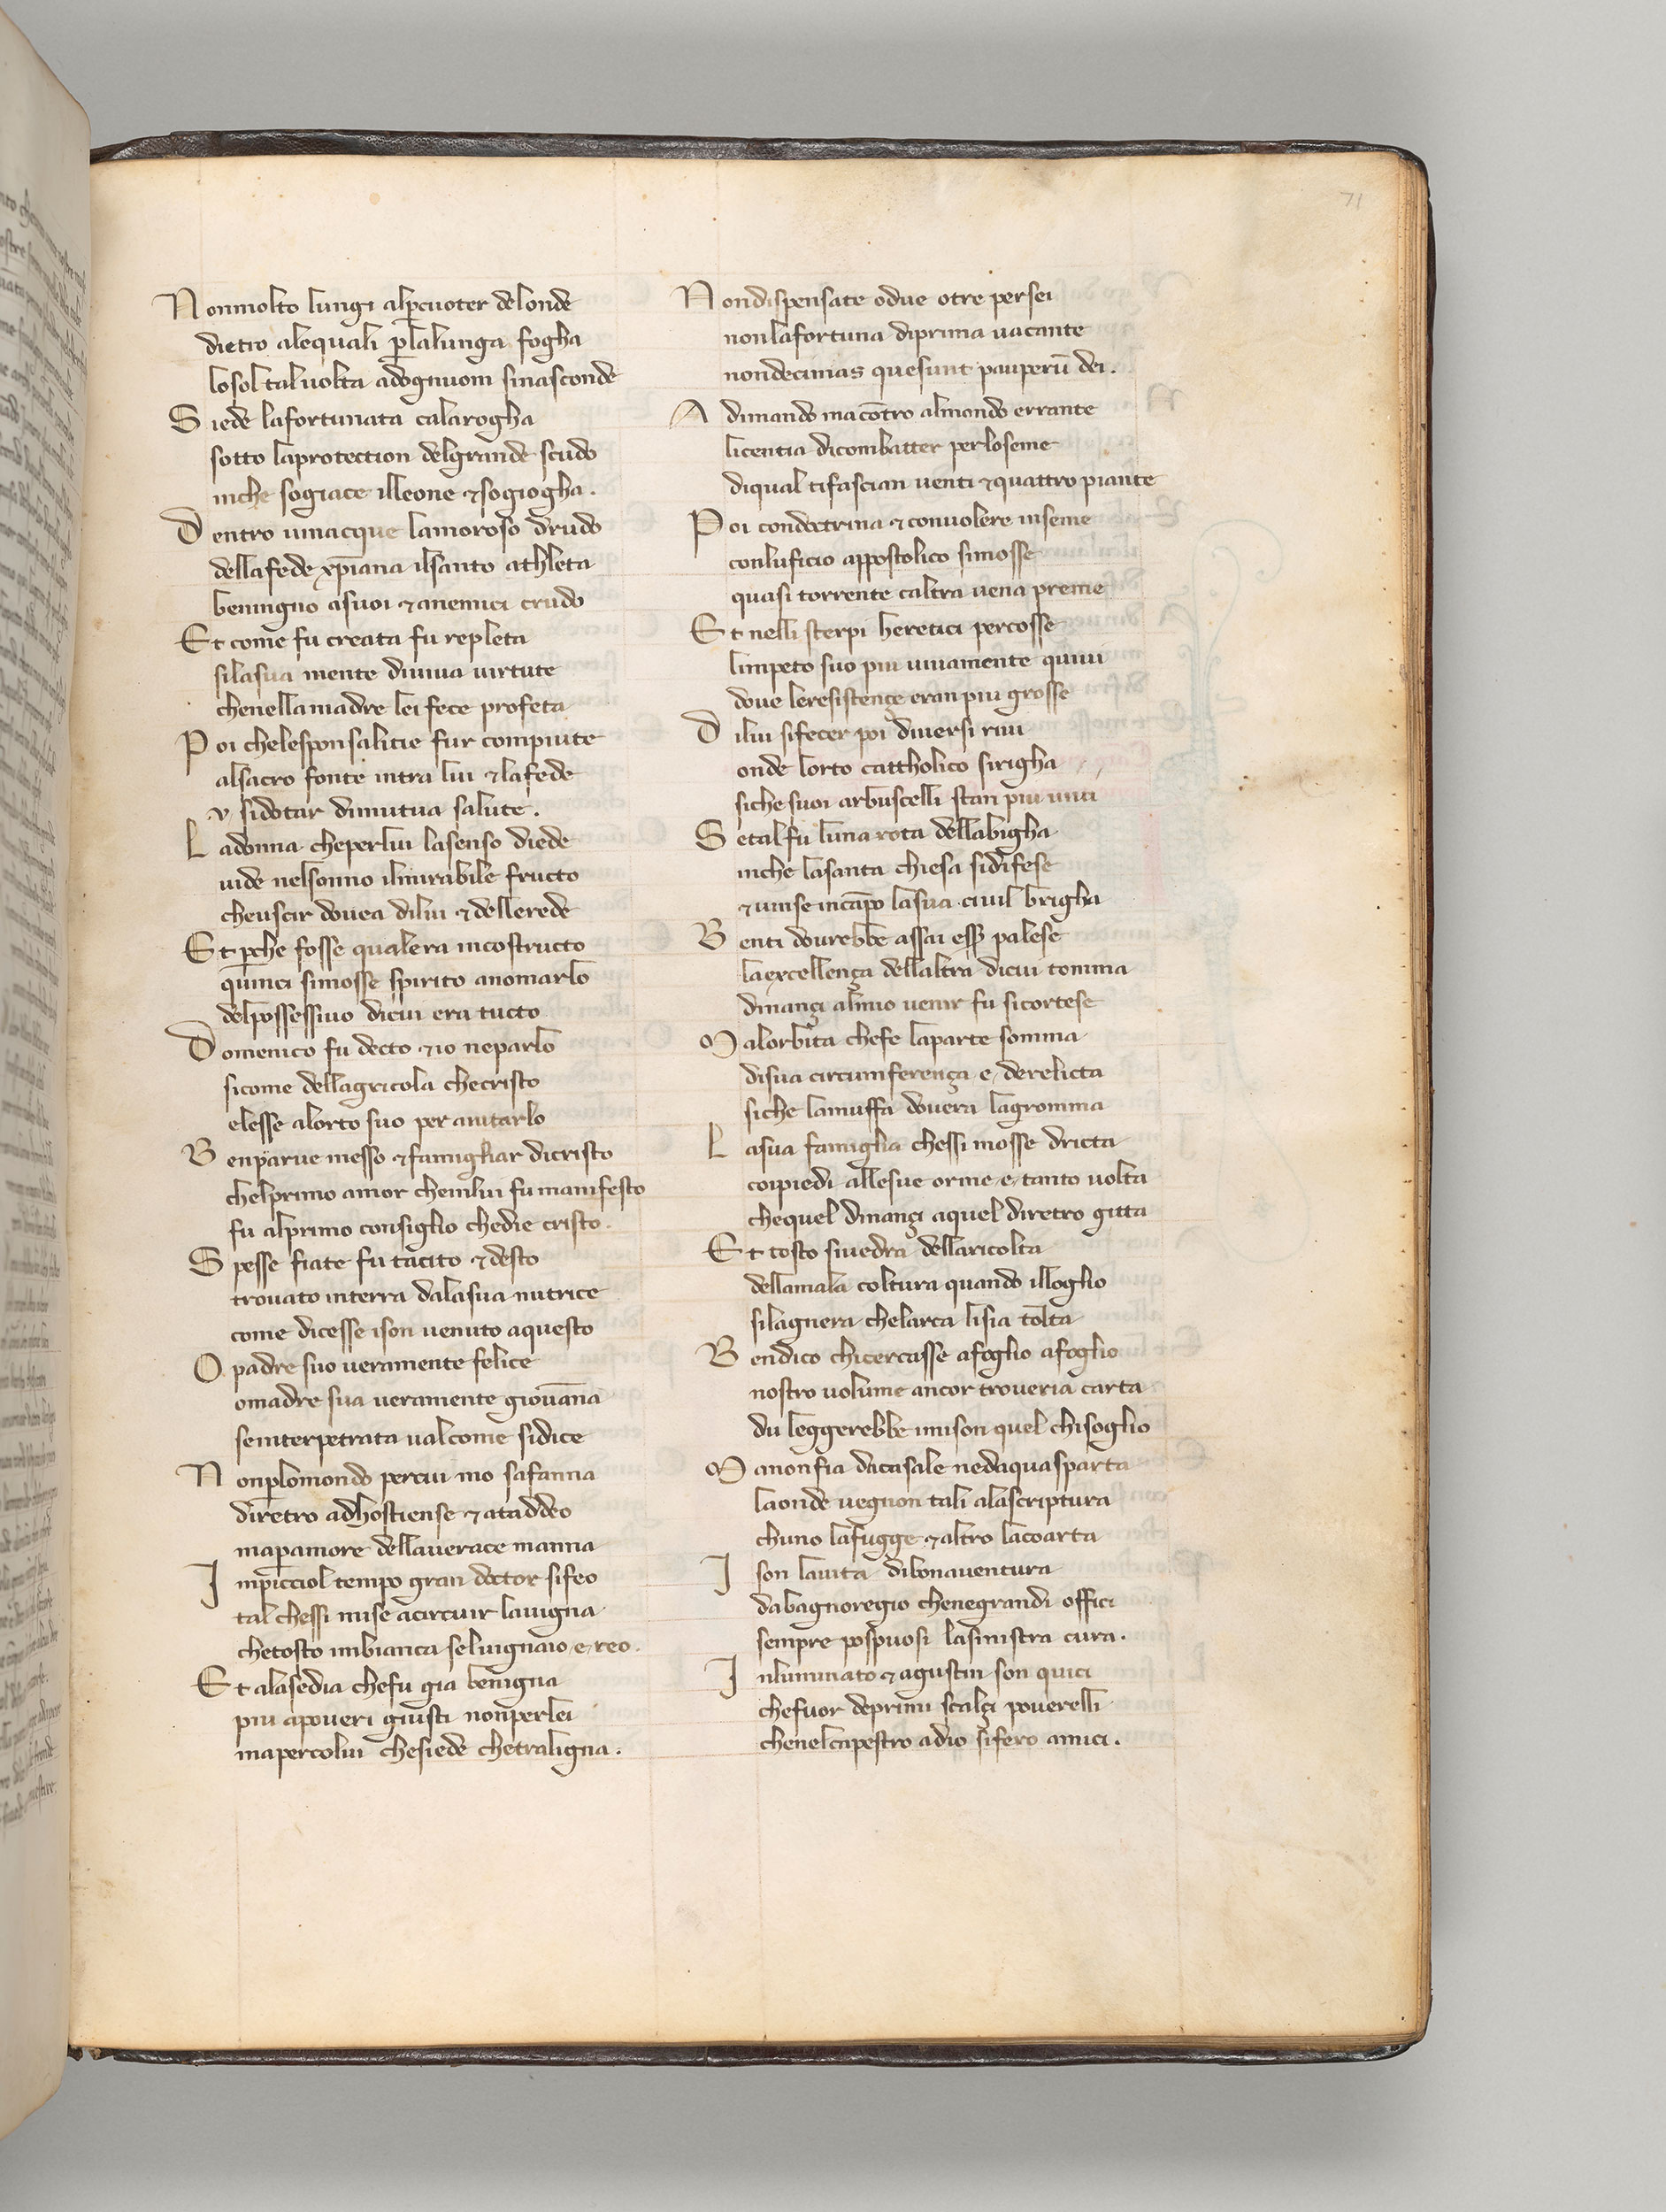 71
Nonmolto lungi alpcuoter delonde
dietro alequali plalunga fogha
losol taluolta adognuom sinasconde
Siede lafortunata calarogha
sotto laprotection delgrande scudo
inche sogiace illeone & sogiogha.
Dentro uinacque lamoroso drudo
dellafede xpiana ilsanto athleta
beningno asuoi & anemici crudo
Et come fu creata fu repleta
silasua mente diuiua uirtute
chenellamadre lei fece profeta
Poi chelesponsalitie fur compiute
alsacro fonte intra lui & lafede
v sidotar dimutua salute.
Ladonna cheperlui lasenso diede
uide nelsonno ilmirabile fructo
cheuscir douea dilui & dellerede
Et pche fosse qualera incostructo
quinci simosse spirito anomarlo
delpossessiuo dicui era tucto
Domenico fu decto & io neparlo
sicome dellagricola checristo
elesse alorto suo per aiutarlo
Benparue messo & famigliar dicristo
chelprimo amor chenlui fu manifesto
fu alprimo consiglio chedie cristo.
Spesse fiate fu tacito & desto
trouato interra dalasua nutrice
come dicesse ison uenuto aquesto
O padre suo ueramente felice
omadre sua ueramente giouāna
seinterpetrata ualcome sidice
Nonplomondo percui mo safanna
diretro adhostiense & ataddeo
mapamore dellauerace manna
Inpicciol tempo gran doctor sifeo
tal chessi mise acircuir lauigna
chetosto imbianca seluignaio e reo.
Et alasedia chefu gia benigna
piu apoueri giusti nonperlei
mapercolui chesiede chetraligna.
Nondispensate odue otre persei
nonlafortuna diprima uacante
nondecimas quesunt pauperū dei.
Adimando macōtro almondo errante
licentia dicombatter perloseme
diqual tifascian uenti & quattro piante
Poi condoctrina & conuolere inseme
conluficio appostolico simosse
quasi torrente caltra uena preme
Et nelli sterpi heretici percosse
limpeto suo piu uiuamente quiui
doue leresistençe eran piu grosse
Dilui sifecer poi diuersi riui
onde lorto cattholico sirigha
siche suoi arbuscelli stan piu uiui
Setal fu luna rota dellabigha
inche lasanta chiesa sidifese
& uinse incāpo lasua ciuil brigha
Benti dourebbe assai esser palese
laexcellença dellaltra dicui tomma
dinançi almio uenir fu sicortese
Malorbita chefe laparte somma
disua circumferença e derelicta
siche lamuffa douera lagromma
Lasua famiglia chessi mosse dricta
coipiedi allesue orme e tanto uolta
chequel dinançi aquel diretro gitta
Et tosto siuedra dellaricolta
dellamala coltura quando illoglio
silagnera chelarca lisia tolta
Bendico chicercasse afoglio afoglio
nostro uolume ancor troueria carta
du leggerebbe imison quel chisoglio
Manonfia dacasale nedaquasparta
laonde uegnon tali alascriptura
chuno lafugge & altro lacoarta
I son lauita dibonauentura
dabagnoregio chenegrandi offici
sempre pospuosi lasinistra cura.
Inluminato & agustin son quici
chefuor deprimi scalçi pouerelli
chenelcapestro adio sifero amici.